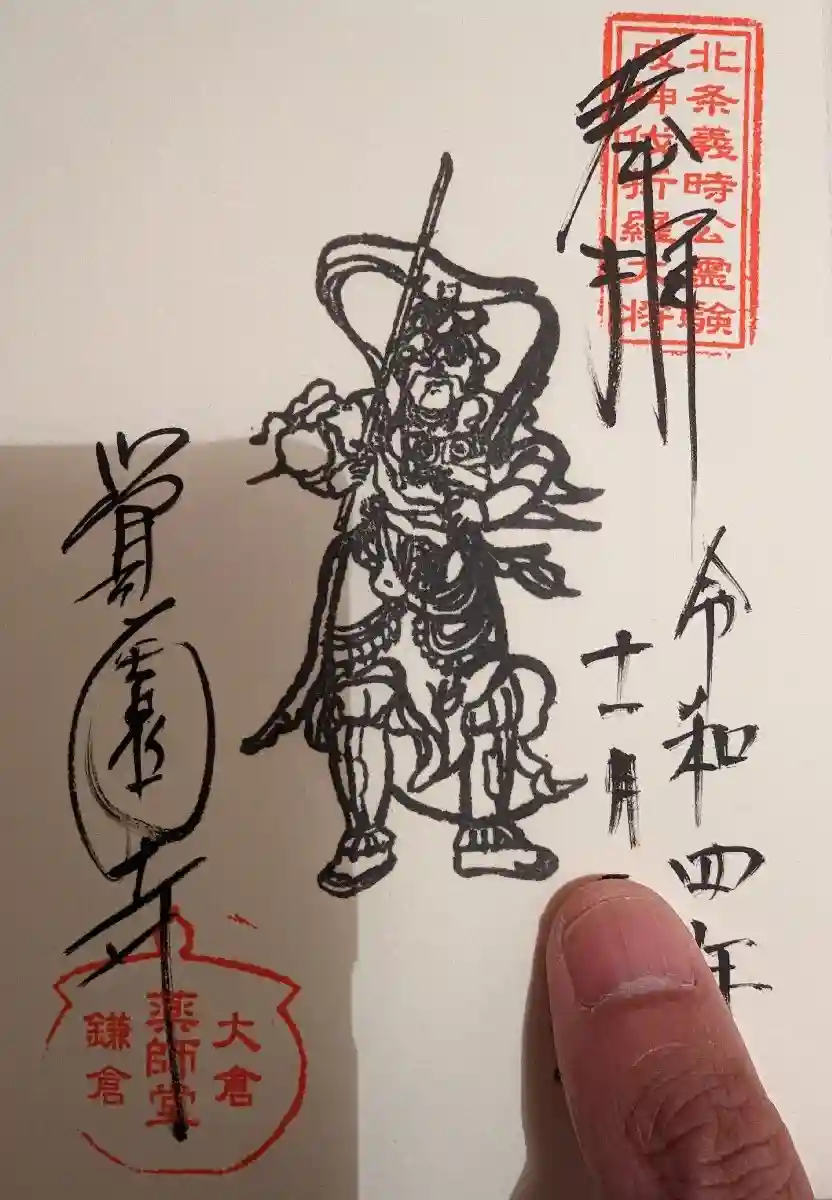 奉拝
北条義時公霊験
戌神伐折羅大将
令和四年
十一月
覚園寺
大倉
薬師堂
鎌倉